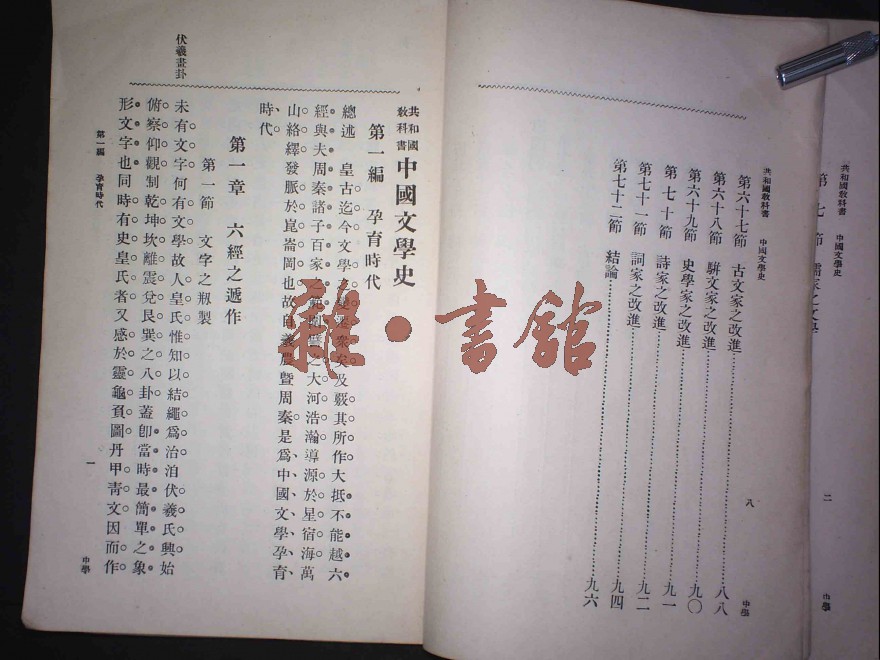 共和國教科書 中國文學史
二
中學
共和國教科書 中國文學史
八
中學
第六十七節 古文家之改進……八八
第六十八節 駢文家之改進……九〇
第六十九節 史學家之改進……九一
第七十節 詩家之改進……九二
第七十一節 詞家之改進……九四
第七十二節 結論……九六
共和國教科書 中國文學史
第一編 孕育時代
總述 皇古迄今文學之變遷衆矣及覈其所作大抵不能越六
經與夫周秦諸子百家之範圍譬之大河浩瀚導源於星宿海萬
山絡繹發脈於崑崙岡也故自羲農曁周秦是爲中國文學孕育
時代
第一章 六經之遞作
第一節 文字之刱製
未有文字何有文學故人皇氏惟知以結繩爲治洎伏羲氏興始
俯察仰觀制乾坤坎離震兌艮巽之八卦蓋卽當時最簡單之象
形文字也同時有史皇氏者又感於靈龜負圖丹甲靑文因而作
伏羲畫卦
第一編 孕育時代
一
中學
雜·書館